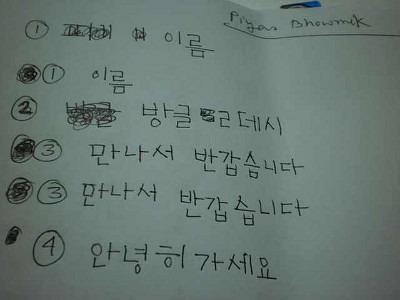 Piyas Bhowmek
① 이름
① 이름
② 방글라데시
③ 만나서 반갑습니다
③ 만나서 반갑습니다
④ 안녕히가세요